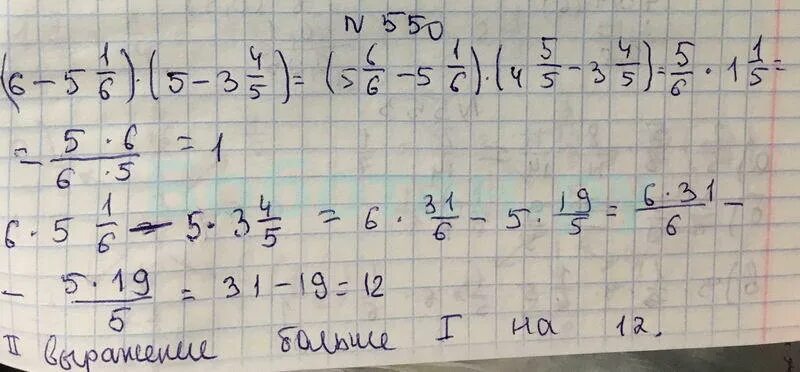 N 550
(6 - 5 1/6) · (5 - 3 4/5) = (5 6/6 - 5 1/6) · (4 5/5 - 3 4/5) = 5/6 · 1 1/5 =
= - 5 · 6 / 6 · 5 = 1
6 · 5 1/6 - 5 · 3 4/5 = 6 · 31/6 - 5 · 19/5 = 6 · 31 / 6 -
- 5 · 19 / 5 = 31 - 19 = 12
II выражение больше I на 12.